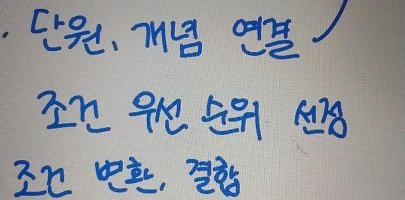 · 단원, 개념 연결
조건 우선 순위 선정
조건 변환, 결합